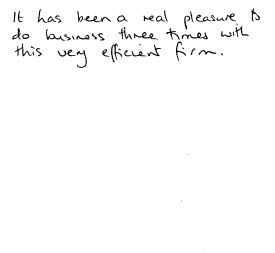 It has been a real pleasure to
do business three times with
this very efficient firm.